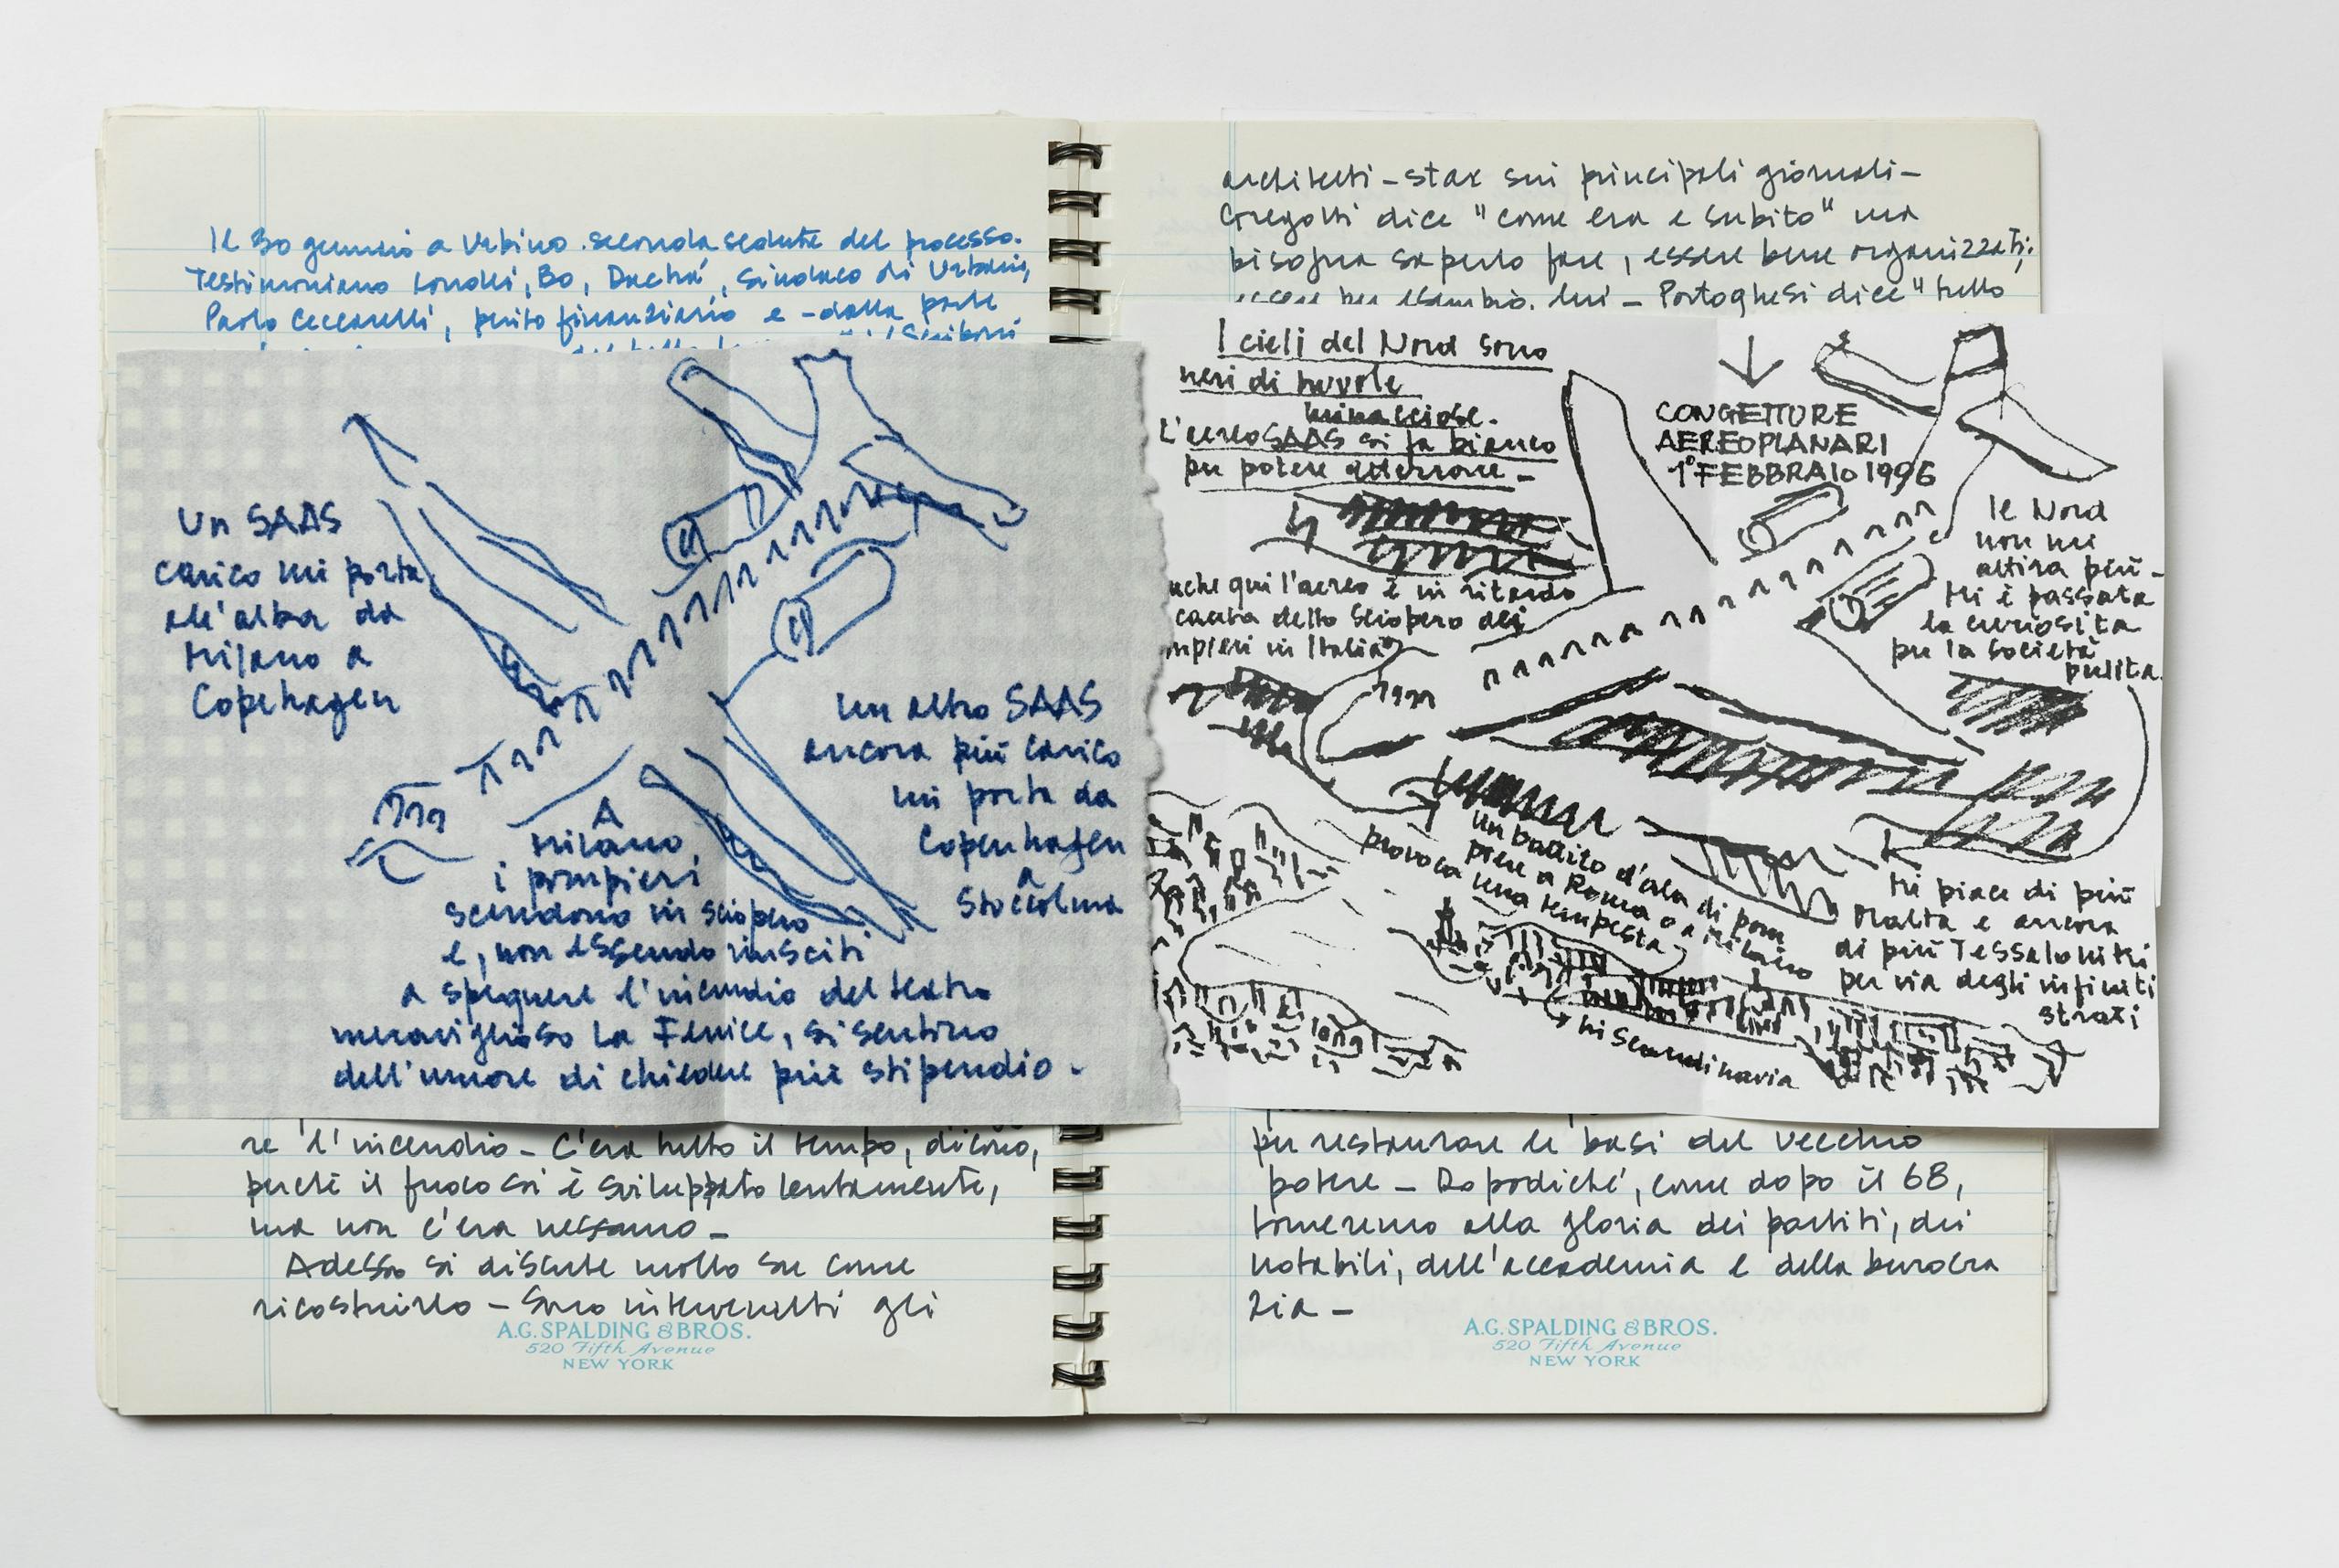 Il 30 gennaio a Urbino seconda seduta del processo.
Testimoniano Londei, Bo, Sindaco di Urbania,
Paolo Ceccarelli, perito finanziario e - dalla parte
Un SAAS
carico mi porta
all'alba da
Milano a
Copenhagen
un altro SAAS
ancora più carico
mi porta da
Copenhagen
a
Stoccolma
A
Milano,
i pompieri
scendono in sciopero
e, non essendo riusciti
a spegnere l'incendio del teatro
meraviglioso La Fenice, si sentono
dell'umore di chiedere più stipendio -
re l'incendio - C'era tutto il tempo, dicono,
perché il fuoco si è sviluppato lentamente,
ma non c'era nessuno -
Adesso si discute molto su come
ricostruirlo - Sono intervenuti gli
A.G. SPALDING & BROS.
520 Fifth Avenue
NEW YORK
architetti-star sui principali giornali -
Gregotti dice "come era e subito" ma
bisogna saperlo fare, essere bene organizzati;
Portoghesi dice "bello
I cieli del Nord sono
neri di nuvole
minacciose.
L'aereo SAAS si fa bianco
per potere atterrare -
anche qui l'aereo è in ritardo
causa dello sciopero dei
mpieri in Italia
CONGETTURE
AEREOPLANARI
1° FEBBRAIO 1996
Il Nord
non mi
attira più -
Mi è passata
la curiosità
per la società
pulita
Un battito d'ala di pom
piere a Roma o a Milano
provoca una tempesta
in Scandinavia
Mi piace di più
Malta e ancora
di più Tessaloniki
per via degli infiniti
strati
per restaurare le basi del vecchio
potere - Dopodiché, come dopo il 68,
torneremo alla gloria dei partiti, dei
notabili, dell'accademia e della burocra
zia -
A.G. SPALDING & BROS.
520 Fifth Avenue
NEW YORK